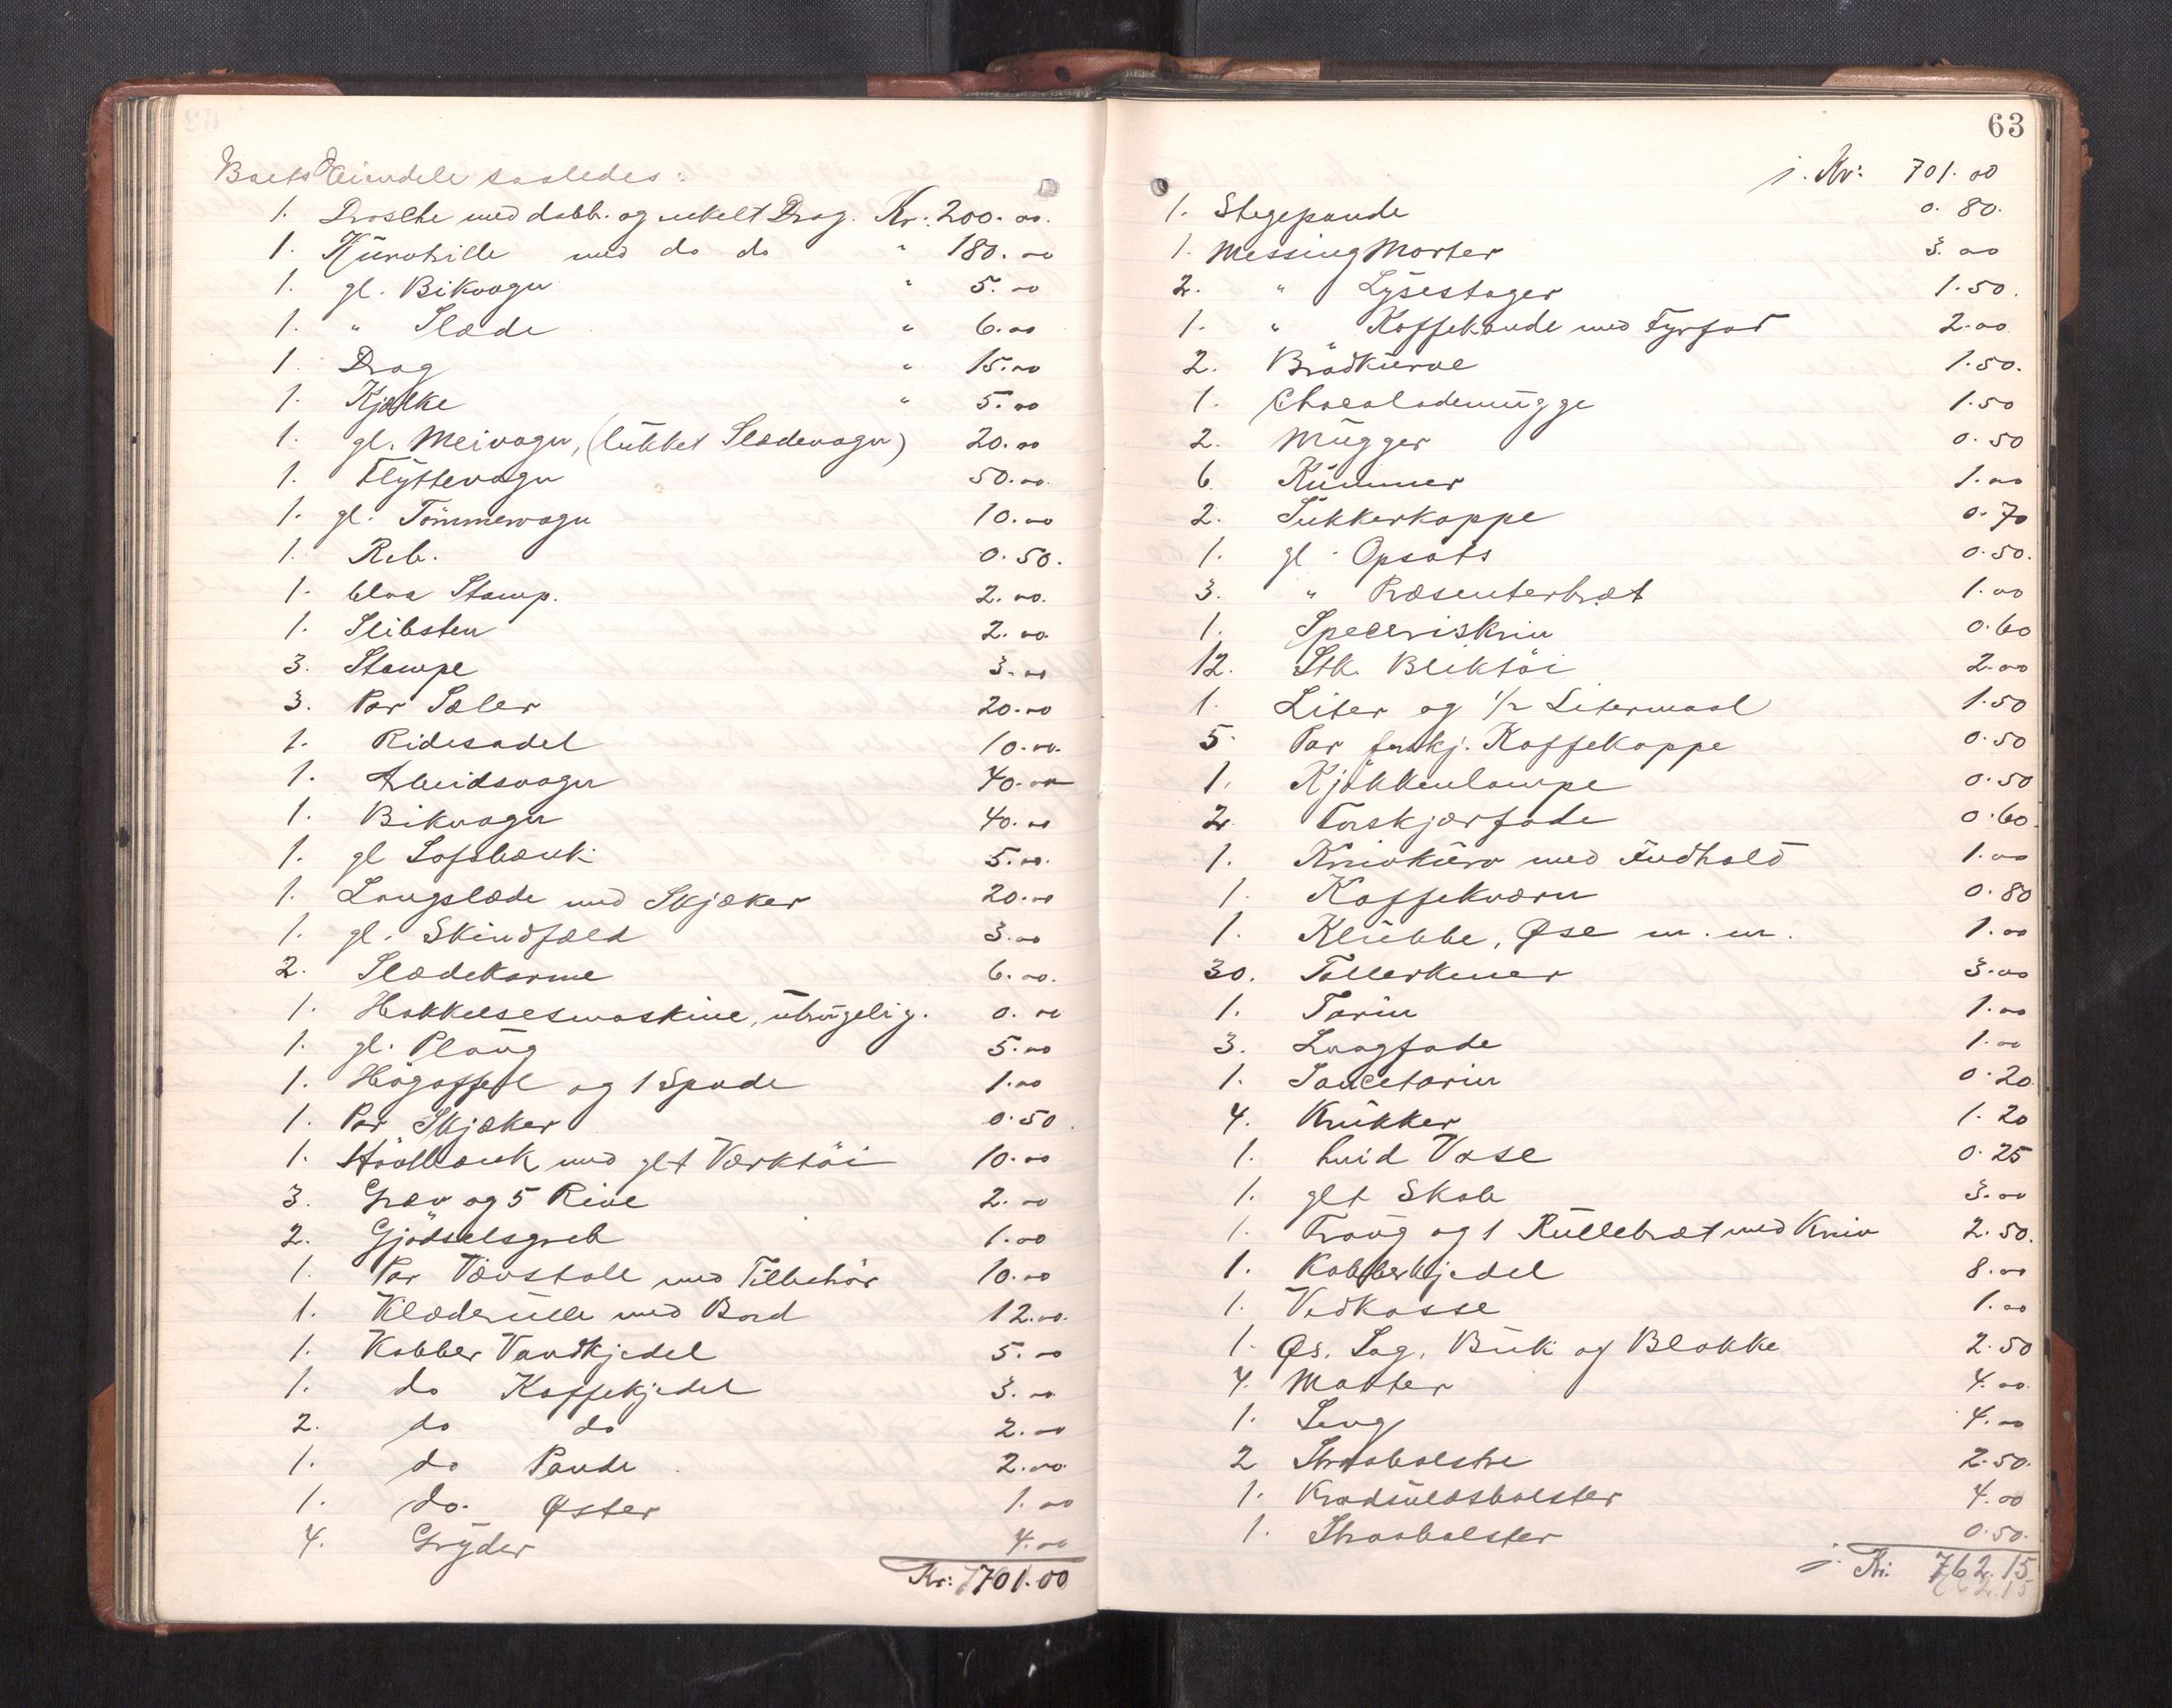 Boets Eiendele saaledes:
1. Drosche med dobb. og enkelt Drag. Kr: 200.00.
1. Kurvtrille med do do " 180.00
1. gl. Bikvogn " 5.00
1. " Slæde " 6.00
1. Drag " 15.00
1. Kjælke " 5.00
1. gl. Meivogn, (lukket Slædevogn) 20.00
1. Flyttevogn 50.00
1. gl. Tömmervogn 10.00
1. Reb. 0.50.
1. blaa Stamp. 2.00.
1. Slibsten 2.00
3. Stampe 3.00
3. Par Sæler 20.00
1. Ridesadel 10.00.
1. Arbeidsvogn 40.00
1. Bikvogn 40.00
1. gl Lofsbænk 5.00.
1. Langslæde med Skjæker 20.00
1. gl. Skindfæld 3.00
2. Slædekarme 6.00.
1. Hakkelsesmaskine, ubrugelig. 0.00
1. gl. Ploug 5.00
1. Högaffel og 1 Spade 1.00
1. Par Skjæker 0.50.
1. Hövlbænk med glt Værktöi 10.00
3. Græv og 5 Rive 2.00
2. Gjödselsgreb 1.00
1. Par Vævstole med Tilbehör 10.00
1. Klæderulle med Bord 12.00.
1. Kobber Vandkjedel 5.00
1. do Kaffekjedel 3.00
2. do do 2.00
1. do Pande 2.00
1. do. Øster 1.00
4. Gryder 4.00
Kr: 701.00
63
j. Kr: 701.00
1. Stegepande 0.80.
1. Messing Morter 3.00
2. " Lysestager 1.50.
1. " Kaffekande med Fyrfad 2.00
2. Brödkurve 1.50.
1. Chocolademugge 1.50
2. Mugger 0.50
6 Kummer 1.00
2. Sukkerkoppe 0.70
1. gl. Opsats 0.50.
3. " Præsenterbræt 1.00
1. Speceriskrin 0.60
12. Stk. Bliktöi 2.00
1. Liter og 1/2 Litermaal 1.50
5. Par forskj. Kaffekoppe 0.50
1. Kjökkenlampe 0.50
2. Forskjærfade 0.60.
1. Knivkurv med Indhold 1.00
1. Kaffekværn 0.80
1. Klubbe, Øse m.m. 1.00
30. Tallerkener 3.00
1. Tarin 1.00
3. Langfade 1.00
1. Saucetarin 0.20
4. Krukker 1.20
1. hvid Vase 0.25
1. glt Skab 3.00
1. Traug og 1 Rullebræt med Kniv 2.50.
1. Kobberkjedel 8.00
1. Vedkasse 1.00
1. Øs. Sag, Buk og Blokke 2.50
4. Matter 4.00
1. Seng 4.00
2 Straabolstre 2.50.
1. Kraduldsbolster 4.00
1. Straabolster 0.50.
j. Kr. 762.15
762.15